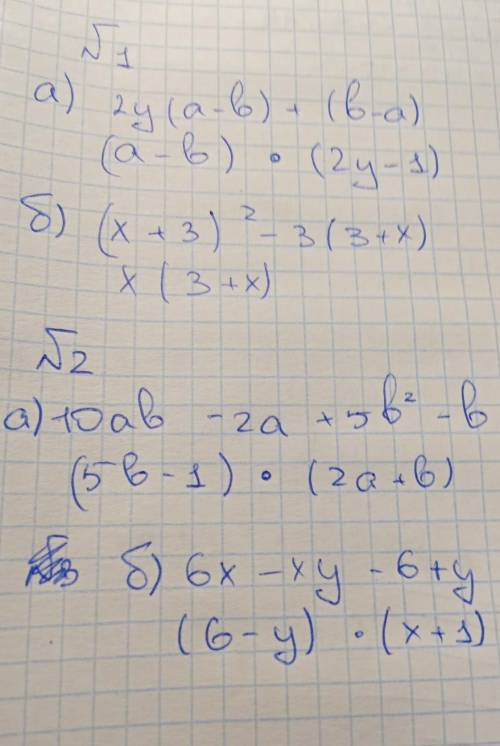 №1
а) 2y(a-b) + (b-a)
(a-b) · (2y-1)
б) (x+3)² - 3(3+x)
x(3+x)
№2
а) 10ab - 2a + 5b² - b
(5b-1) · (2a+b)
б) 6x - xy - 6 + y
(6-y) · (x+1)